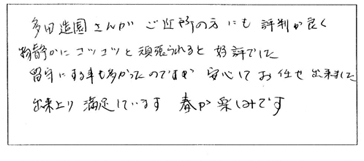 多田造園さんが ご近所の方にも 評判が良く
物静かにコツコツと頑張られると 好評でした
留守にする事も多かったのですが 安心してお任せ出来ました
出来上り 満足しています 春が楽しみです